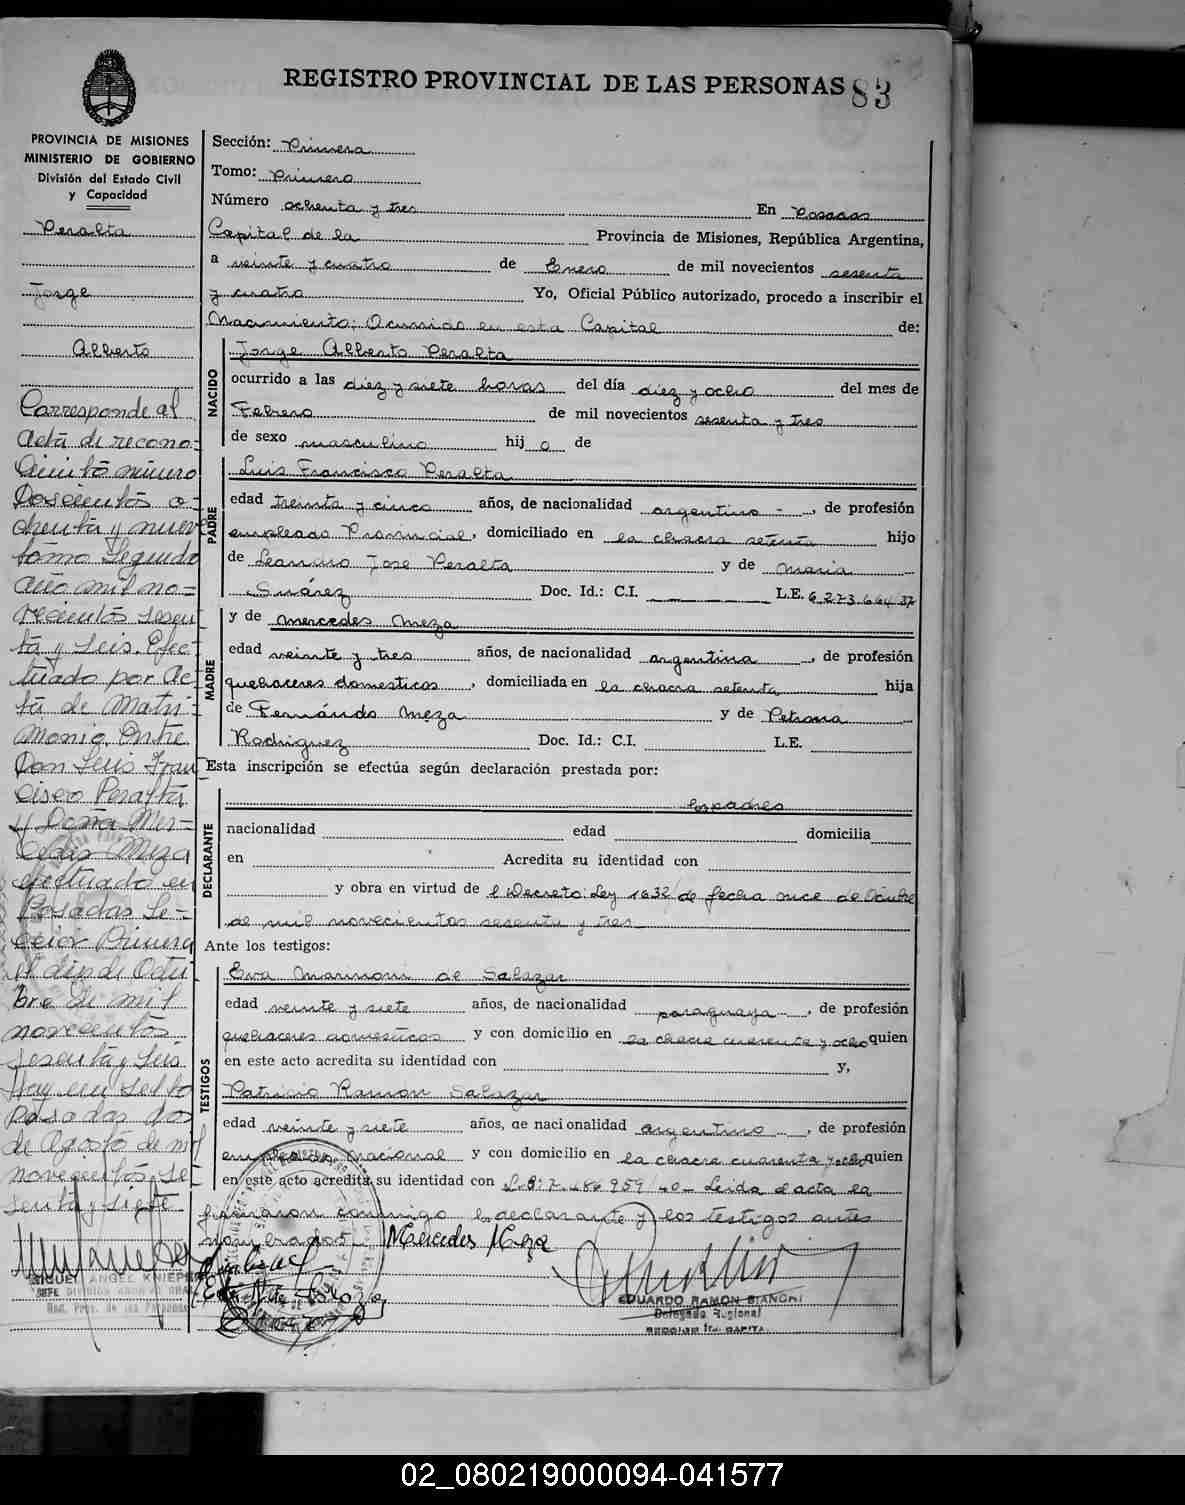 REGISTRO PROVINCIAL DE LAS PERSONAS 83
PROVINCIA DE MISIONES
MINISTERIO DE GOBIERNO
División del Estado Civil
y Capacidad
Peralta
Jorge
Alberto
Corresponde al
acta de recono-
cimito número
Doscientos o-
chenta y nueve
tomo Segundo
año mil no-
vecientos sesen
ta y seis. Efec-
tuado por Ac-
ta de Matri-
monio. Entre
Don Luis Fran
cisco Peralta
y Doña Mer-
cedes Meza
efectuado en
Posadas Se-
ccion Primera
de Octu
bre de mil
novecientos
sesenta y seis
Posadas dos
de Agosto de mil
novecientos se-
senta y siete
MIGUEL ANGEL KNIEPS
Reg. Prov. de las Personas
Sección: Primera
Tomo: Primero
Número ochenta y tres En Posadas
Capital de la Provincia de Misiones, República Argentina,
a veinte y cuatro de Enero de mil novecientos sesenta
y cuatro Yo, Oficial Público autorizado, procedo a inscribir el
Nacimiento; Ocurrido en esta Capital de:
NACIDO
Jorge Alberto Peralta
ocurrido a las diez y siete horas del día diez y ocho del mes de
Febrero de mil novecientos sesenta y tres
de sexo masculino hij o de
PADRE
Luis Francisco Peralta
edad treinta y cinco años, de nacionalidad argentino -, de profesión
empleado Provincial, domiciliado en la chacra setenta hijo
de Leandro Jose Peralta y de Maria
Suárez Doc. Id.: C.I. L.E. 6.273.664/37
MADRE
y de Mercedes Meza
edad veinte y tres años, de nacionalidad argentina, de profesión
quehaceres domesticos, domiciliada en la chacra setenta hija
de Fernándo Meza y de Petrona
Rodriguez Doc. Id.: C.I. L.E.
Esta inscripción se efectúa según declaración prestada por:
DECLARANTE
los padres
nacionalidad edad domicilia
en Acredita su identidad con
y obra en virtud de l Decreto: Ley 1632/ de fecha once de Octubre
de mil novecientos sesenta y tres
Ante los testigos:
TESTIGOS
Eva Marinoni de Salazar
edad veinte y siete años, de nacionalidad paraguaya, de profesión
quehaceres domesticos y con domicilio en la chacra cuarenta y ocho quien
en este acto acredita su identidad con y,
Patricio Ramón Salazar
edad veinte y siete años, de nacionalidad argentino, de profesión
empleado Nacional y con domicilio en la chacra cuarenta y ocho quien
en este acto acredita su identidad con 7.486.959/40- Leida el acta la
firmaron conmigo los declarante y los testigos antes
nombrados.- Mercedes Meza
EDUARDO RAMON BIANCHI
Delegado Regional
02_080219000094-041577